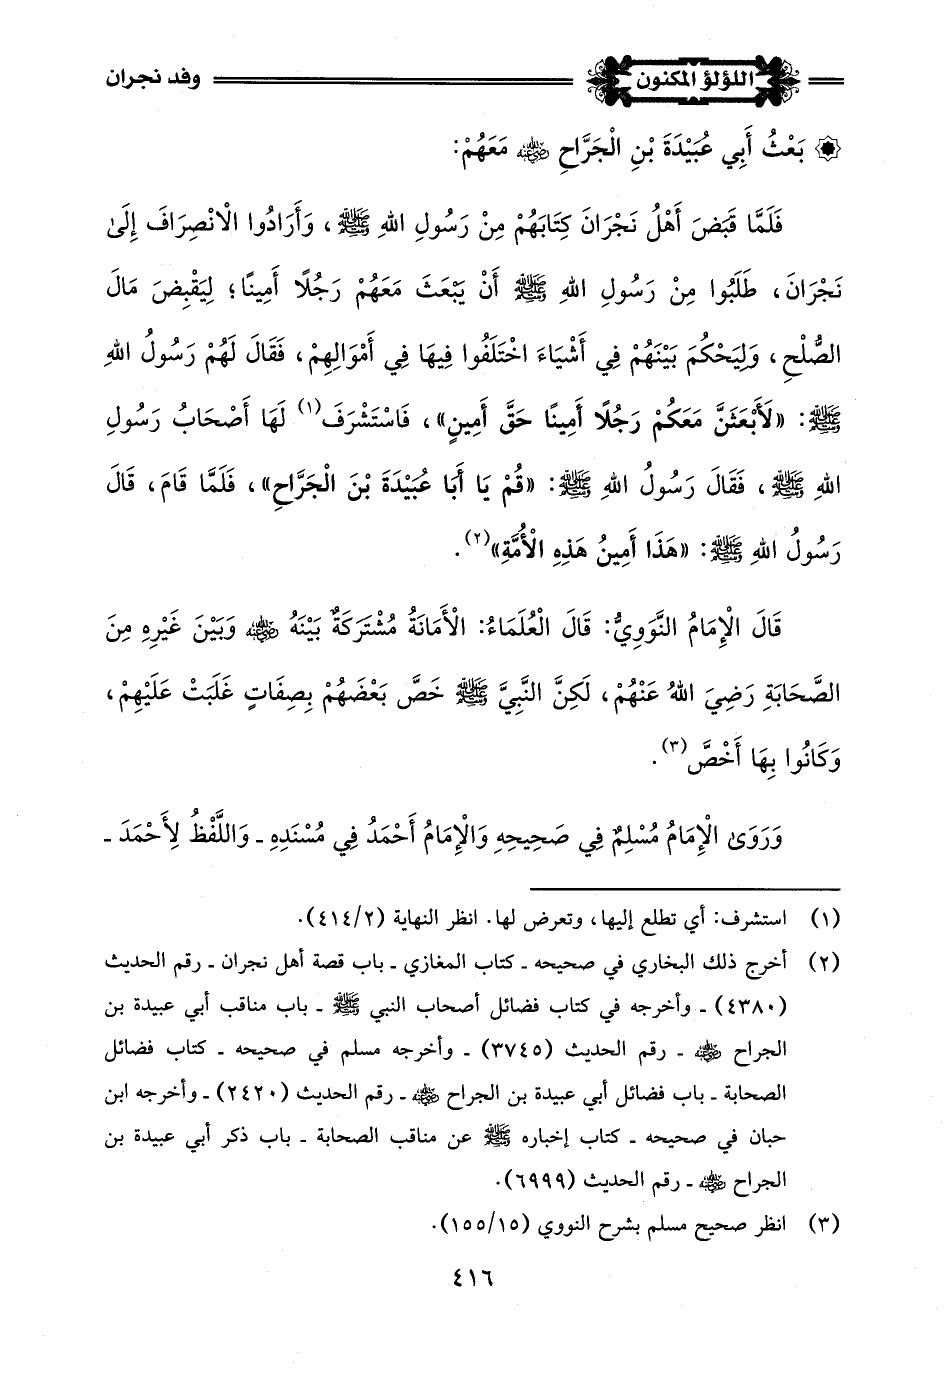 اللؤلؤ المكنون
وفد نجران
بَعْثُ أَبِي عُبَيْدَةَ بْنِ الْجَرَّاحِ رضي الله عنه مَعَهُمْ:
فَلَمَّا قَبَضَ أَهْلُ نَجْرَانَ كِتَابَهُمْ مِنْ رَسُولِ اللهِ ﷺ، وَأَرَادُوا الْانْصِرَافَ إِلَىٰ
نَجْرَانَ، طَلَبُوا مِنْ رَسُولِ اللهِ ﷺ أَنْ يَبْعَثَ مَعَهُمْ رَجُلًا أَمِينًا؛ لِيَقْبِضَ مَالَ
الصُّلْحِ، وَلِيَحْكُمَ بَيْنَهُمْ فِي أَشْيَاءَ اخْتَلَفُوا فِيهَا فِي أَمْوَالِهِمْ، فَقَالَ لَهُمْ رَسُولُ اللهِ
ﷺ: «لَأَبْعَثَنَّ مَعَكُمْ رَجُلًا أَمِينًا حَقَّ أَمِينٍ»، فَاسْتَشْرَفَ(١) لَهَا أَصْحَابُ رَسُولِ
اللهِ ﷺ، فَقَالَ رَسُولُ اللهِ ﷺ: «قُمْ يَا أَبَا عُبَيْدَةَ بْنَ الْجَرَّاحِ»، فَلَمَّا قَامَ، قَالَ
رَسُولُ اللهِ ﷺ: «هَذَا أَمِينُ هَذِهِ الْأُمَّةِ»(٢).
قَالَ الْإِمَامُ النَّوَوِيُّ: قَالَ الْعُلَمَاءُ: الْأَمَانَةُ مُشْتَرَكَةٌ بَيْنَهُ رضي الله عنه وَبَيْنَ غَيْرِهِ مِنَ
الصَّحَابَةِ رَضِيَ اللهُ عَنْهُمْ، لَكِنَّ النَّبِيَّ ﷺ خَصَّ بَعْضَهُمْ بِصِفَاتٍ غَلَبَتْ عَلَيْهِمْ،
وَكَانُوا بِهَا أَخَصَّ(٣).
وَرَوَىٰ الْإِمَامُ مُسْلِمٌ فِي صَحِيحِهِ وَالْإِمَامُ أَحْمَدُ فِي مُسْنَدِهِ ـ وَاللَّفْظُ لِأَحْمَدَ ـ
(١) استشرف: أي تطلع إليها، وتعرض لها. انظر النهاية (٤١٤/٢).
(٢) أخرج ذلك البخاري في صحيحه ـ كتاب المغازي ـ باب قصة أهل نجران ـ رقم الحديث
(٤٣٨٠) ـ وأخرجه في كتاب فضائل أصحاب النبي ﷺ ـ باب مناقب أبي عبيدة بن
الجراح رضي الله عنه ـ رقم الحديث (٣٧٤٥) ـ وأخرجه مسلم في صحيحه ـ كتاب فضائل
الصحابة ـ باب فضائل أبي عبيدة بن الجراح رضي الله عنه ـ رقم الحديث (٢٤٢٠) ـ وأخرجه ابن
حبان في صحيحه ـ كتاب إخباره ﷺ عن مناقب الصحابة ـ باب ذكر أبي عبيدة بن
الجراح رضي الله عنه ـ رقم الحديث (٦٩٩٩).
(٣) انظر صحيح مسلم بشرح النووي (١٥٥/١٥).
٤١٦